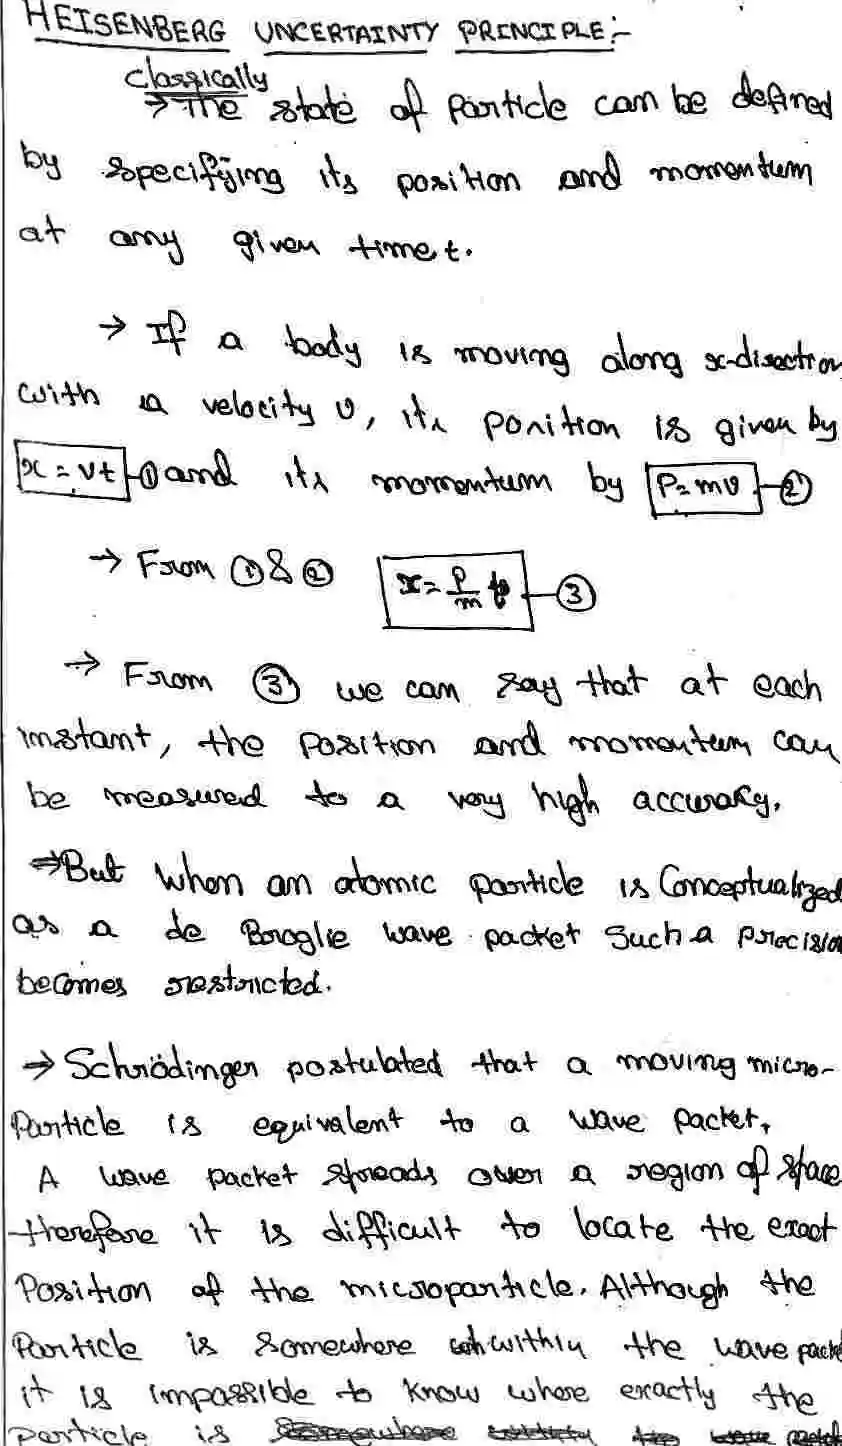 HEISENBERG UNCERTAINTY PRINCIPLE:-
classically
→ The state of particle can be defined
by specifying its position and momentum
at any given time t.
→ If a body is moving along x-direction
with a velocity v, its position is given by
x = vt ① and its momentum by P = mv ②
→ From ① & ② x = P/m t ③
→ From ③ we can say that at each
instant, the position and momentum can
be measured to a very high accuracy.
⇒ But when an atomic particle is Conceptualized
as a de Broglie wave packet such a precision
becomes restricted.
→ Schrödinger postulated that a moving micro-
Particle is equivalent to a wave packet.
A wave packet spreads over a region of space
therefore it is difficult to locate the exact
Position of the microparticle. Although the
Particle is somewhere within the wave packet
it is impossible to know where exactly the
particle is